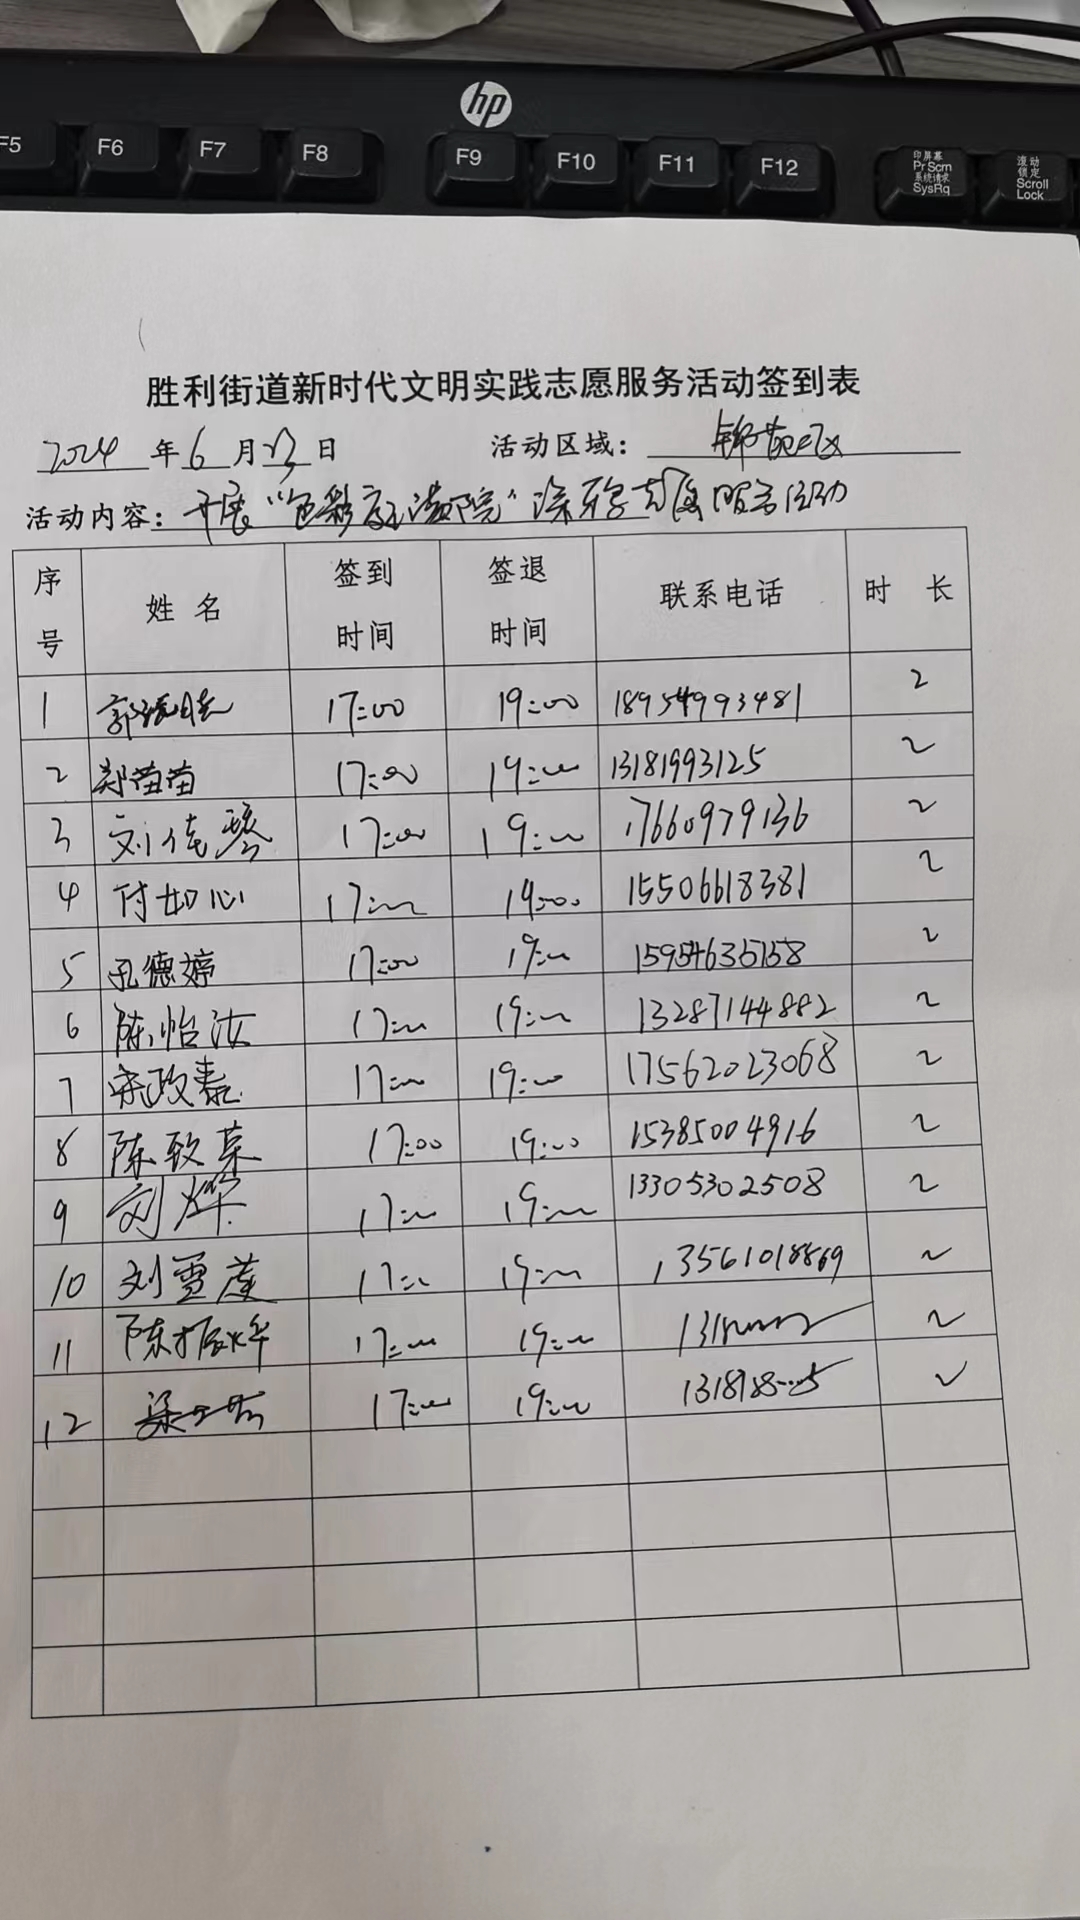 hp
F5 F6 F7 F8 F9 F10 F11 F12
印屏幕 Pr Scrn 系统请求 SysRq
滚动 锁定 Scroll Lock
胜利街道新时代文明实践志愿服务活动签到表
2024 年 6 月 日 活动区域：
活动内容：开展“色彩 院” 服务活动
序号 姓名 签到时间 签退时间 联系电话 时长
1 郭 17:00 19:00 18954993481 2
2 郑苗苗 17:00 19:00 13181993125 2
3 刘佳琴 17:00 19:00 17660979136 2
4 付如心 17:00 19:00 15506618381 2
5 孔德婷 17:00 19:00 15954635158 2
6 陈怡汝 17:00 19:00 13287144882 2
7 宋政泰 17:00 19:00 17562023068 2
8 陈致荣 17:00 19:00 15385004916 2
9 刘烨 17:00 19:00 13305302508 2
10 刘雪莲 17:00 19:00 13561018869 2
11 陈振华 17:00 19:00 2
12 17:00 19:00 2